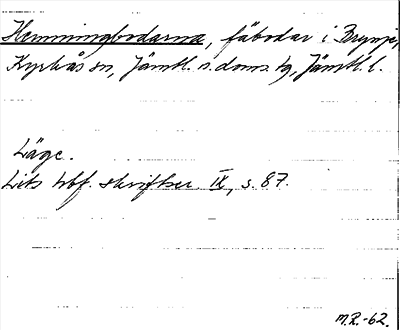 Hemmingbodarna, fäbodar i Brynje,
Kyrkås sn, Jämtl. n. doms. tg, Jämtl. l.
Läge.
Lits hbf. skrifter IX, s. 87.
M.R.-62.